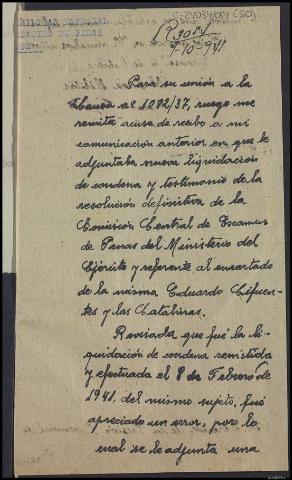 C-24034/004 (S01)
7-10-941
Para su unión a la
Causa nº 1082/37, ruego me
remita acuse de recibo a mi
comunicación anterior en que le
adjuntaba nueva liquidación
de condena y testimonio de la
resolución definitiva de la
Comisión Central de Examen
de Penas del Ministerio del
Ejército y referente al encartado
de la misma Eduardo Cifuen-
tes y las Catalinas.
Revisada que fué la li-
quidación de condena remitida
y efectuada el 8 de Febrero de
1941, del mismo sujeto, fué
apreciado un error, por lo
cual se le adjunta una